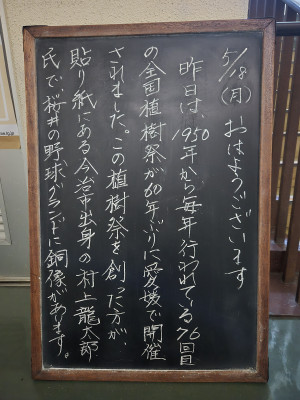 5/18(月) おはようございます
昨日は、1950年から毎年行われている76回目
の全国植樹祭が60年ぶりに愛媛で開催
されました。この植樹祭を創った方が
貼り紙にある今治市出身の村上龍太郎
氏で桜井の野球グランドに銅像があります。